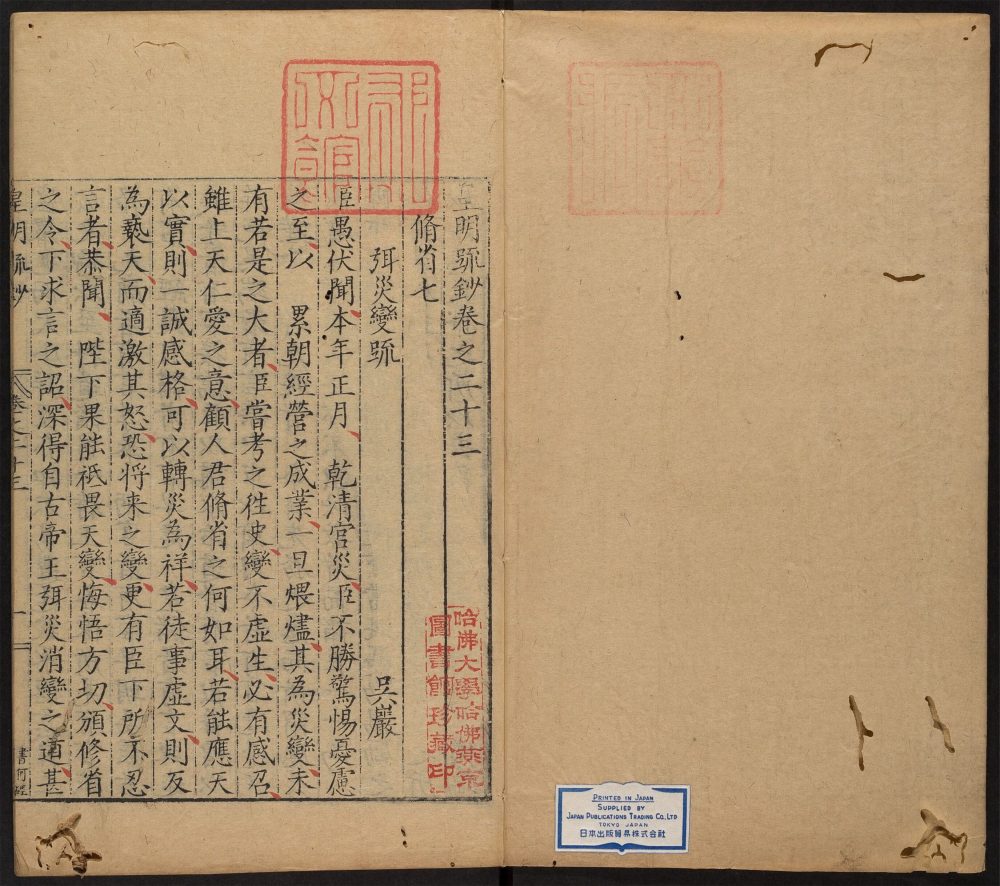 皇明疏鈔卷之二十三
脩省七
弭災變疏
吳巖
臣愚伏聞本年正月 乾清宫災臣不勝驚惕憂慮
之至以 累朝經營之成業一旦煨燼其為災變未
有若是之大者臣嘗考之徃史變不虛生必有感召
雖上天仁愛之意顧人君脩省之何如耳若能應天
以實則一誠感格可以轉災為祥若徒事虛文則反
為褻天而適激其怒恐将来之變更有臣下所不忍
言者恭聞 陛下果能祗畏天變悔悟方切頒修省
之令下求言之詔深得自古帝王弭災消變之道甚
皇明疏鈔
卷之二十三
一
哈佛大學哈佛燕京
圖書館珍藏印
PRINTED IN JAPAN
SUPPLIED BY
JAPAN PUBLICATIONS TRADING CO., LTD
TOKYO JAPAN
日本出版貿易株式会社